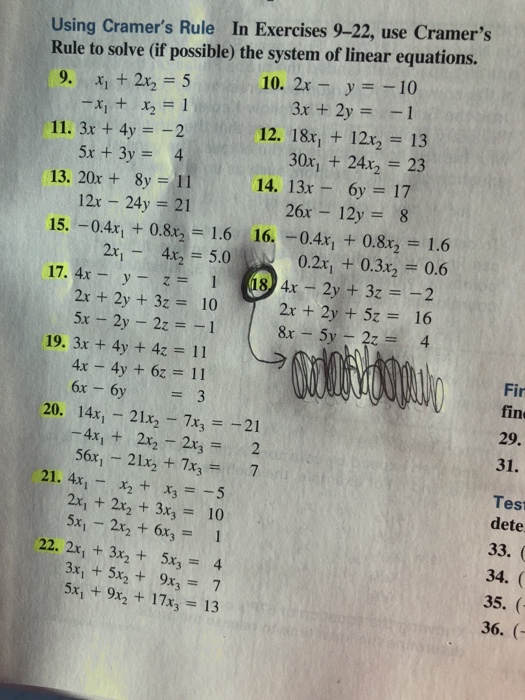 Using Cramer's Rule In Exercises 9–22, use Cramer's
Rule to solve (if possible) the system of linear equations.
9. x₁ + 2x₂ = 5
−x₁ + x₂ = 1
10. 2x − y = −10
3x + 2y = −1
11. 3x + 4y = −2
5x + 3y = 4
12. 18x₁ + 12x₂ = 13
30x₁ + 24x₂ = 23
13. 20x + 8y = 11
12x − 24y = 21
14. 13x − 6y = 17
26x − 12y = 8
15. −0.4x₁ + 0.8x₂ = 1.6
2x₁ − 4x₂ = 5.0
16. −0.4x₁ + 0.8x₂ = 1.6
0.2x₁ + 0.3x₂ = 0.6
17. 4x − y − z = 1
2x + 2y + 3z = 10
5x − 2y − 2z = −1
18. 4x − 2y + 3z = −2
2x + 2y + 5z = 16
8x − 5y − 2z = 4
19. 3x + 4y + 4z = 11
4x − 4y + 6z = 11
6x − 6y = 3
20. 14x₁ − 21x₂ − 7x₃ = −21
−4x₁ + 2x₂ − 2x₃ = 2
56x₁ − 21x₂ + 7x₃ = 7
21. 4x₁ − x₂ + x₃ = −5
2x₁ + 2x₂ + 3x₃ = 10
5x₁ − 2x₂ + 6x₃ = 1
22. 2x₁ + 3x₂ + 5x₃ = 4
3x₁ + 5x₂ + 9x₃ = 7
5x₁ + 9x₂ + 17x₃ = 13
Fin
fin
29.
31.
Test
dete
33. (
34. (
35. (-
36. (-